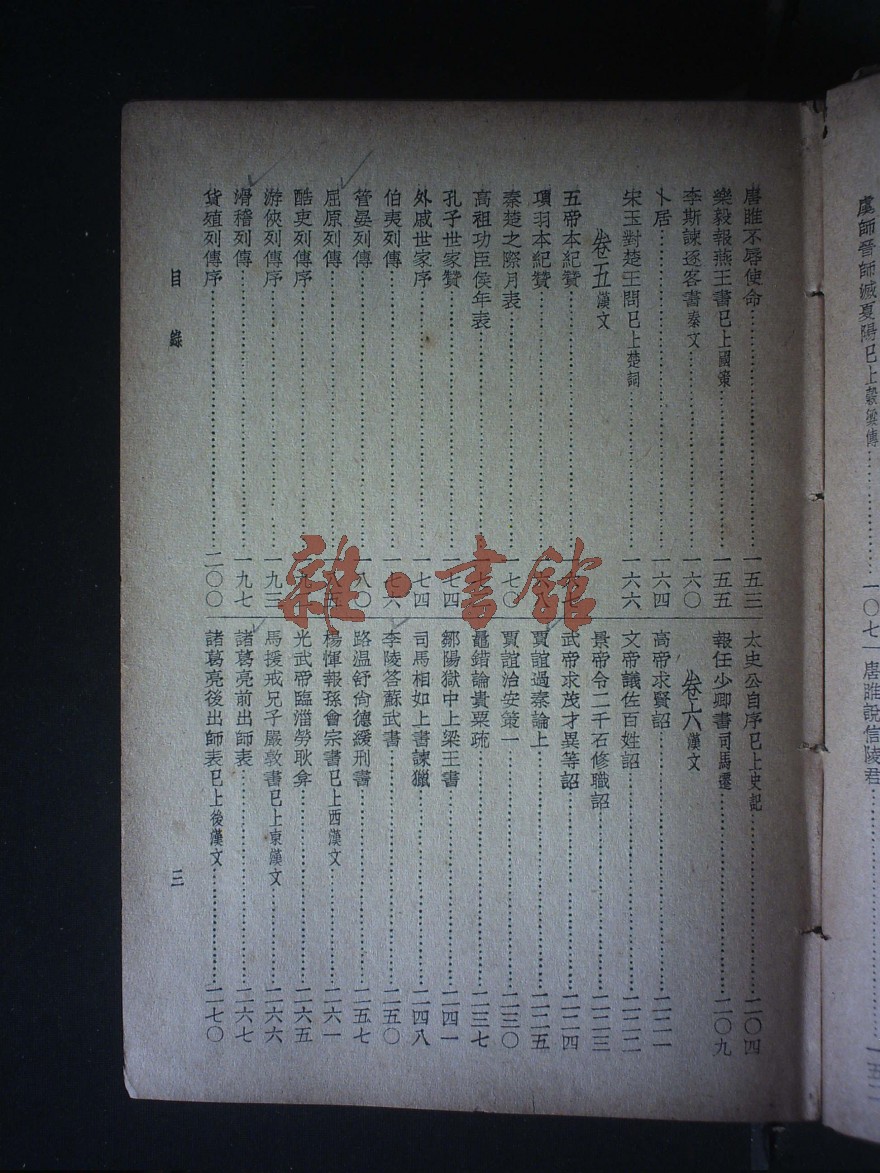 虞師晉師滅夏陽已上穀梁傳…………一〇七
唐雎說信陵君…………一五二
唐雎不辱使命…………一五三
樂毅報燕王書已上國策…………一五五
李斯諫逐客書秦文…………一六〇
卜居…………一六四
宋玉對楚王問已上楚詞…………一六六
卷五漢文
五帝本紀贊…………七
項羽本紀贊…………
秦楚之際月表…………一七〇
高祖功臣侯年表…………
孔子世家贊…………一七四
外戚世家序…………一七四
伯夷列傳…………一七六
管晏列傳…………一八〇
屈原列傳…………一八五
酷吏列傳序…………
游俠列傳序…………一九三
滑稽列傳…………一九七
貨殖列傳序…………二〇〇
太史公自序已上史記…………二〇四
報任少卿書司馬遷…………二〇九
卷六漢文
高帝求賢詔…………二二一
文帝議佐百姓詔…………二二二
景帝令二千石修職詔…………二二三
武帝求茂才異等詔…………二二四
賈誼過秦論上…………二二五
賈誼治安策一…………二三〇
鼂錯論貴粟疏…………二三七
鄒陽獄中上梁王書…………二四一
司馬相如上書諫獵…………二四八
李陵答蘇武書…………二五〇
路温舒尙德緩刑書…………二五七
楊惲報孫會宗書已上西漢文…………二六一
光武帝臨淄勞耿弇…………二六五
馬援戒兄子嚴敦書已上東漢文…………二六六
諸葛亮前出師表…………二六七
諸葛亮後出師表已上後漢文…………二七〇
目錄
三
雜·書館